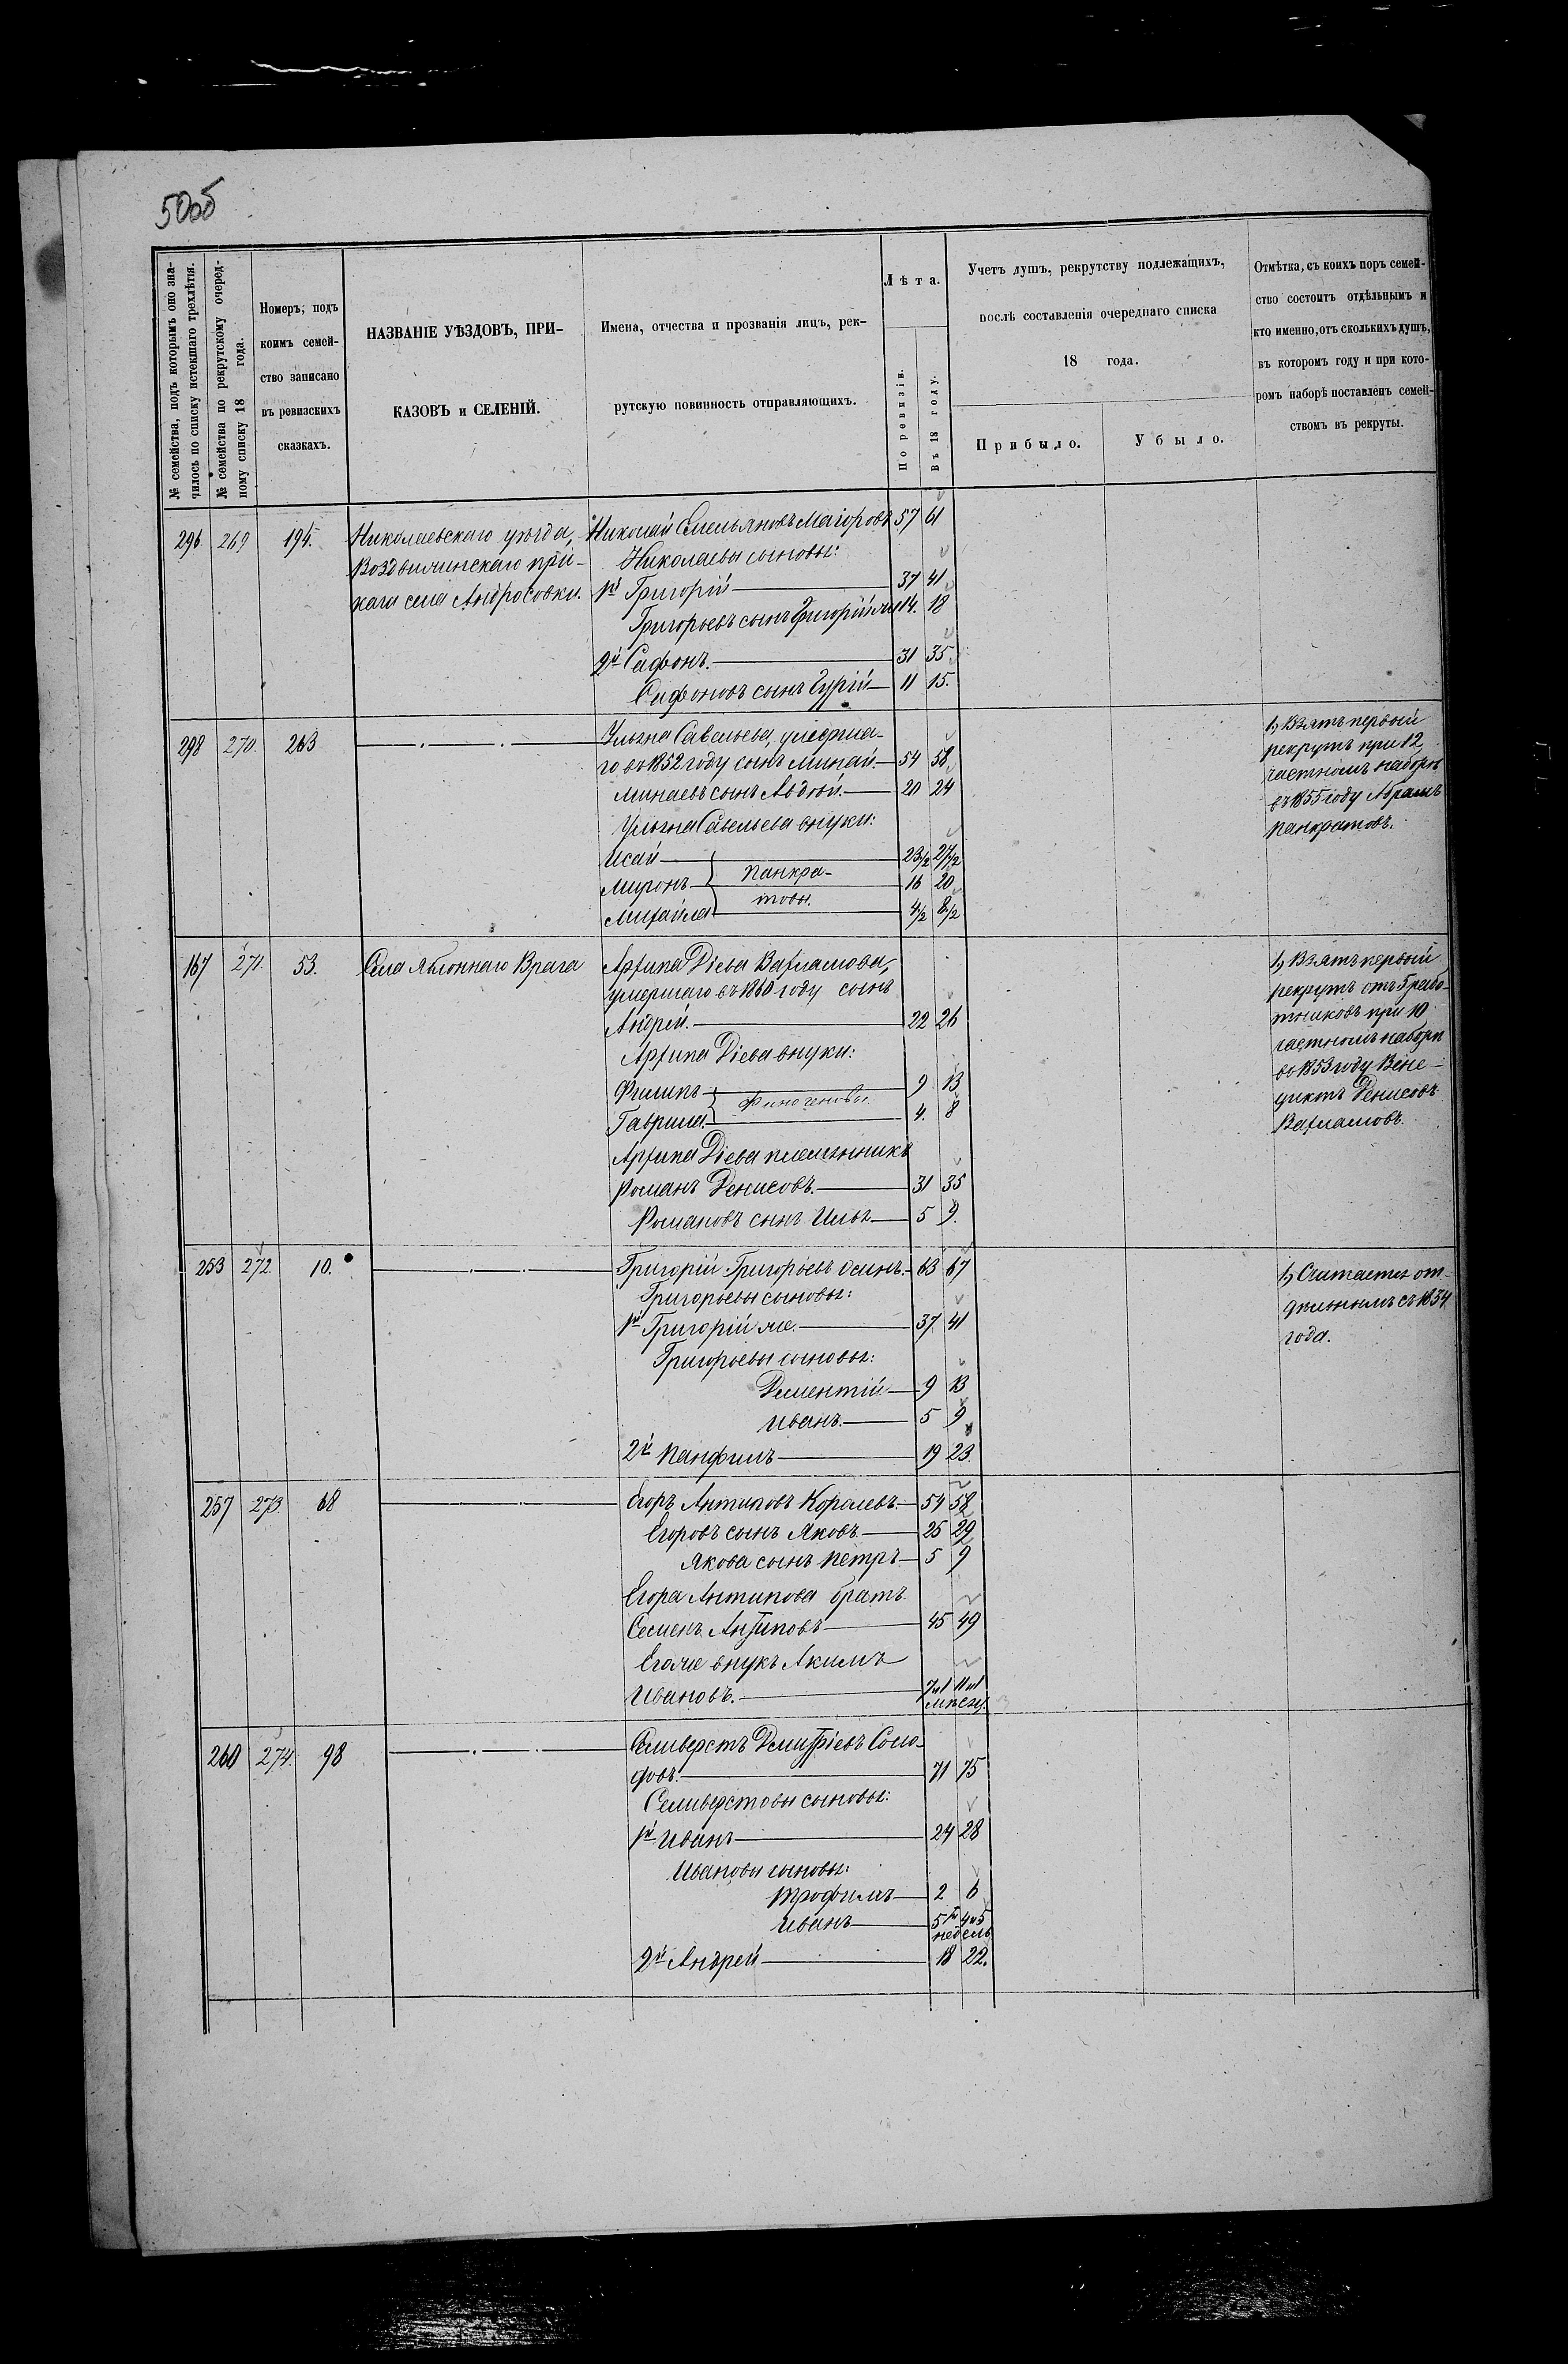 50об
№ семейства, подъ которымъ оно зна-
чилось по списку истекшаго трехлѣтія.
№ семейства по рекрутскому очеред-
ному списку 18 года.
Номеръ, подъ
коимъ семей-
ство записано
въ ревизскихъ
сказкахъ.
НАЗВАНІЕ УѢЗДОВЪ, ПРИ-
КАЗОВЪ и СЕЛЕНІЙ.
Имена, отчества и прозванія лицъ, рек-
рутскую повинность отправляющихъ.
Лѣта.
По ревизіи.
Въ 18 году.
Учетъ душъ, рекрутству подлежащихъ,
послѣ составленія очереднаго списка
18 года.
Прибыло.
Убыло.
Отмѣтка, съ коихъ поръ семей-
ство состоитъ отдѣльнымъ и
кто именно, отъ сколькихъ душъ,
въ которомъ году и при кото-
ромъ наборѣ поставленъ семей-
ствомъ въ рекруты.
296 269 194. Николаевскаго уѣзда, Николай Емельяновъ Маіоровъ 57 61
Николаевы сыновья:
Воздвиженскаго при-
1й Григорій 37 41
каза села Андросовки.
Григорьевъ сынъ Григорій же 14. 18
2й Сафонъ. 31 35
Сафоновъ сынъ Гурій 11 15.
298 270. 263 Ульяна Савельева, умерша-
го въ 1852 году сынъ Минай. 54 58
Минаевъ сынъ Авдей. 20 24
Ульяна Савельева внуки:
Исай 23 1/2 27 1/2
Миронъ Панкра- 16 20
Михайла товы. 4 1/2 8 1/2
1, Взятъ первый
рекрутъ при 12
частномъ наборѣ
въ 1855 году Абрамъ
Панкратовъ.
167 271. 53. Села Яблоннаго Врага Архипа Діева Вахламова,
умершаго въ 1860 году сынъ
Андрей. 22 26
Архипа Діева внуки:
Филипъ 9 13
Финогеновы.
Гаврила. 4. 8
Архипа Діева племянникъ
Романъ Денисовъ. 31 35
Романовъ сынъ Илья 5 9.
1, Взятъ первый
рекрутъ отъ 5 рабо-
тниковъ при 10
частномъ наборѣ
въ 1853 году Вене-
диктъ Денисовъ
Вахламовъ.
253 272. 10. Григорій Григорьевъ Осинъ. 63 67
Григорьевы сыновья:
1й Григорій же. 37 41
Григорьевы сыновья:
Дементій 9 13
Иванъ. 5 9
2й Панфилъ 19 23.
1, Считается от-
дѣльнымъ съ 1834
года.
257 273. 68 Егоръ Антиповъ Королевъ. 54 58
Егоровъ сынъ Яковъ. 25 29
Якова сынъ Петръ 5 9
Егора Антипова братъ
Семенъ Антиповъ 45 49
Его же внукъ Акимъ
Ивановъ. 7м 11м
мѣсяц.
260 274. 98 Селиверстъ Дмитріевъ
71 75
Селиверстовы сыновья:
1й Иванъ 24 28
Ивановы сыновья:
Трофимъ 2 6
Иванъ 5ти 4 и 5
недель
2й Андрей 18 22.